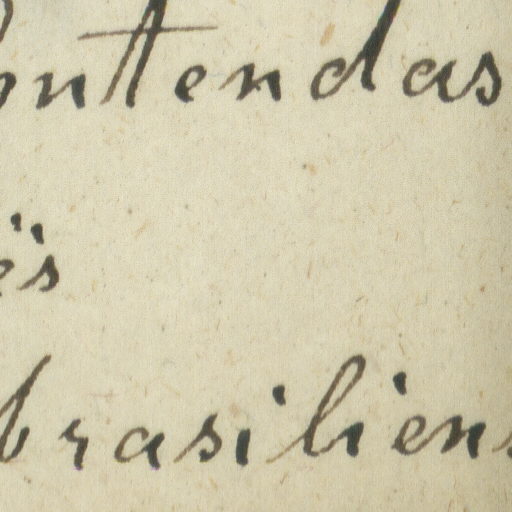 onttendas
ës
brasiliens